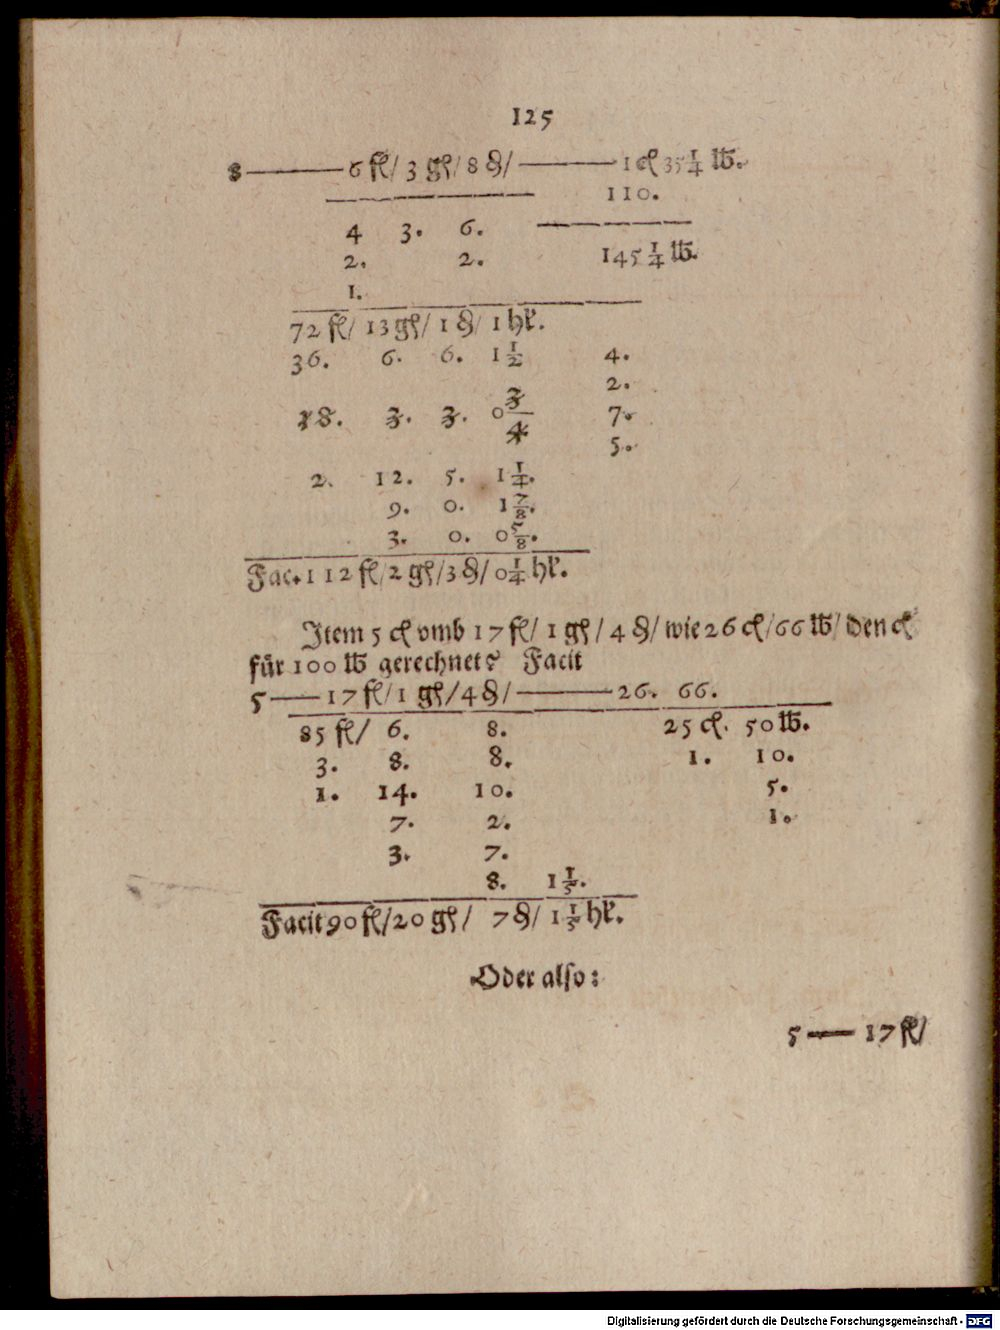 125
8 —— 6 fl/ 3 gß/ 8 ₰/ —— 1 cl 35 1/4 lb.
110.
4 3. 6.
2. 2. 145 1/4 lb.
1.
72 fl/ 13 gß/ 1 ₰/ 1 hl.
36. 6. 6. 1 1/2 4.
2.
18. 3. 3. 0 3/4 7.
5.
2. 12. 5. 1 1/4.
9. 0. 1 7/8.
3. 0. 0 5/8.
Fac. 112 fl/ 2 gß/ 3 ₰/ 0 1/4 hl.
Item 5 cl vmb 17 fl/ 1 gß/ 4 ₰/ wie 26 cl/ 66 lb/ den cl
für 100 lb gerechnet? Facit
5 —— 17 fl/ 1 gß/ 4 ₰/ —— 26. 66.
85 fl/ 6. 8. 25 cl. 50 lb.
3. 8. 8. 1. 10.
1. 14. 10. 5.
7. 2. 1.
3. 7.
8. 1 1/5.
Facit 90 fl/ 20 gß/ 7 ₰/ 1 1/5 hl.
Oder also:
5 —— 17 fl/
Digitalisierung gefördert durch die Deutsche Forschungsgemeinschaft - DFG